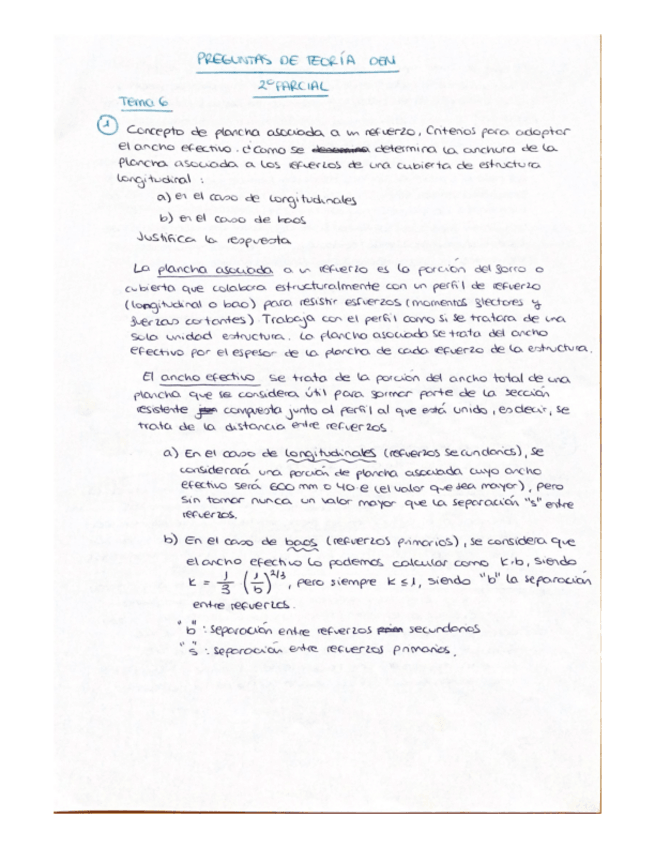 PREGUNTAS DE TEORÍA DEN
2º PARCIAL
Tema 6
1 Concepto de plancha asociada a un refuerzo, Criterios para adoptar
el ancho efectivo. ¿Cómo se determina la anchura de la
plancha asociada a los esfuerzos de una cubierta de estructura
longitudinal:
a) en el caso de longitudinales
b) en el caso de baos
Justifica la respuesta
La plancha asociada a un refuerzo es la porción del forro o
cubierta que colabora estructuralmente con un perfil de refuerzo
(longitudinal o bao) para resistir esfuerzos (momentos flectores y
fuerzas cortantes) Trabaja con el perfil como si se tratara de una
sola unidad estructura. La plancha asociada se trata del ancho
efectivo por el espesor de la plancha de cada refuerzo de la estructura.
El ancho efectivo se trata de la porción del ancho total de una
plancha que se considera útil para formar parte de la sección
resistente compuesta junto al perfil al que está unido, es decir, se
trata de la distancia entre refuerzos
a) En el caso de longitudinales (refuerzos secundarios), se
considerará una porción de plancha asociada cuyo ancho
efectivo será 600 mm o 40·e (el valor que sea mayor), pero
sin tomar nunca un valor mayor que la separación "s" entre
refuerzos.
b) En el caso de baos (refuerzos primarios), se considera que
el ancho efectivo lo podemos calcular como k·b, siendo
k = 1/3 (l/b)^2/3, pero siempre k ≤ 1, siendo "b" la separación
entre refuerzos.
"b": separación entre refuerzos secundarios
"s": separación entre refuerzos primarios.